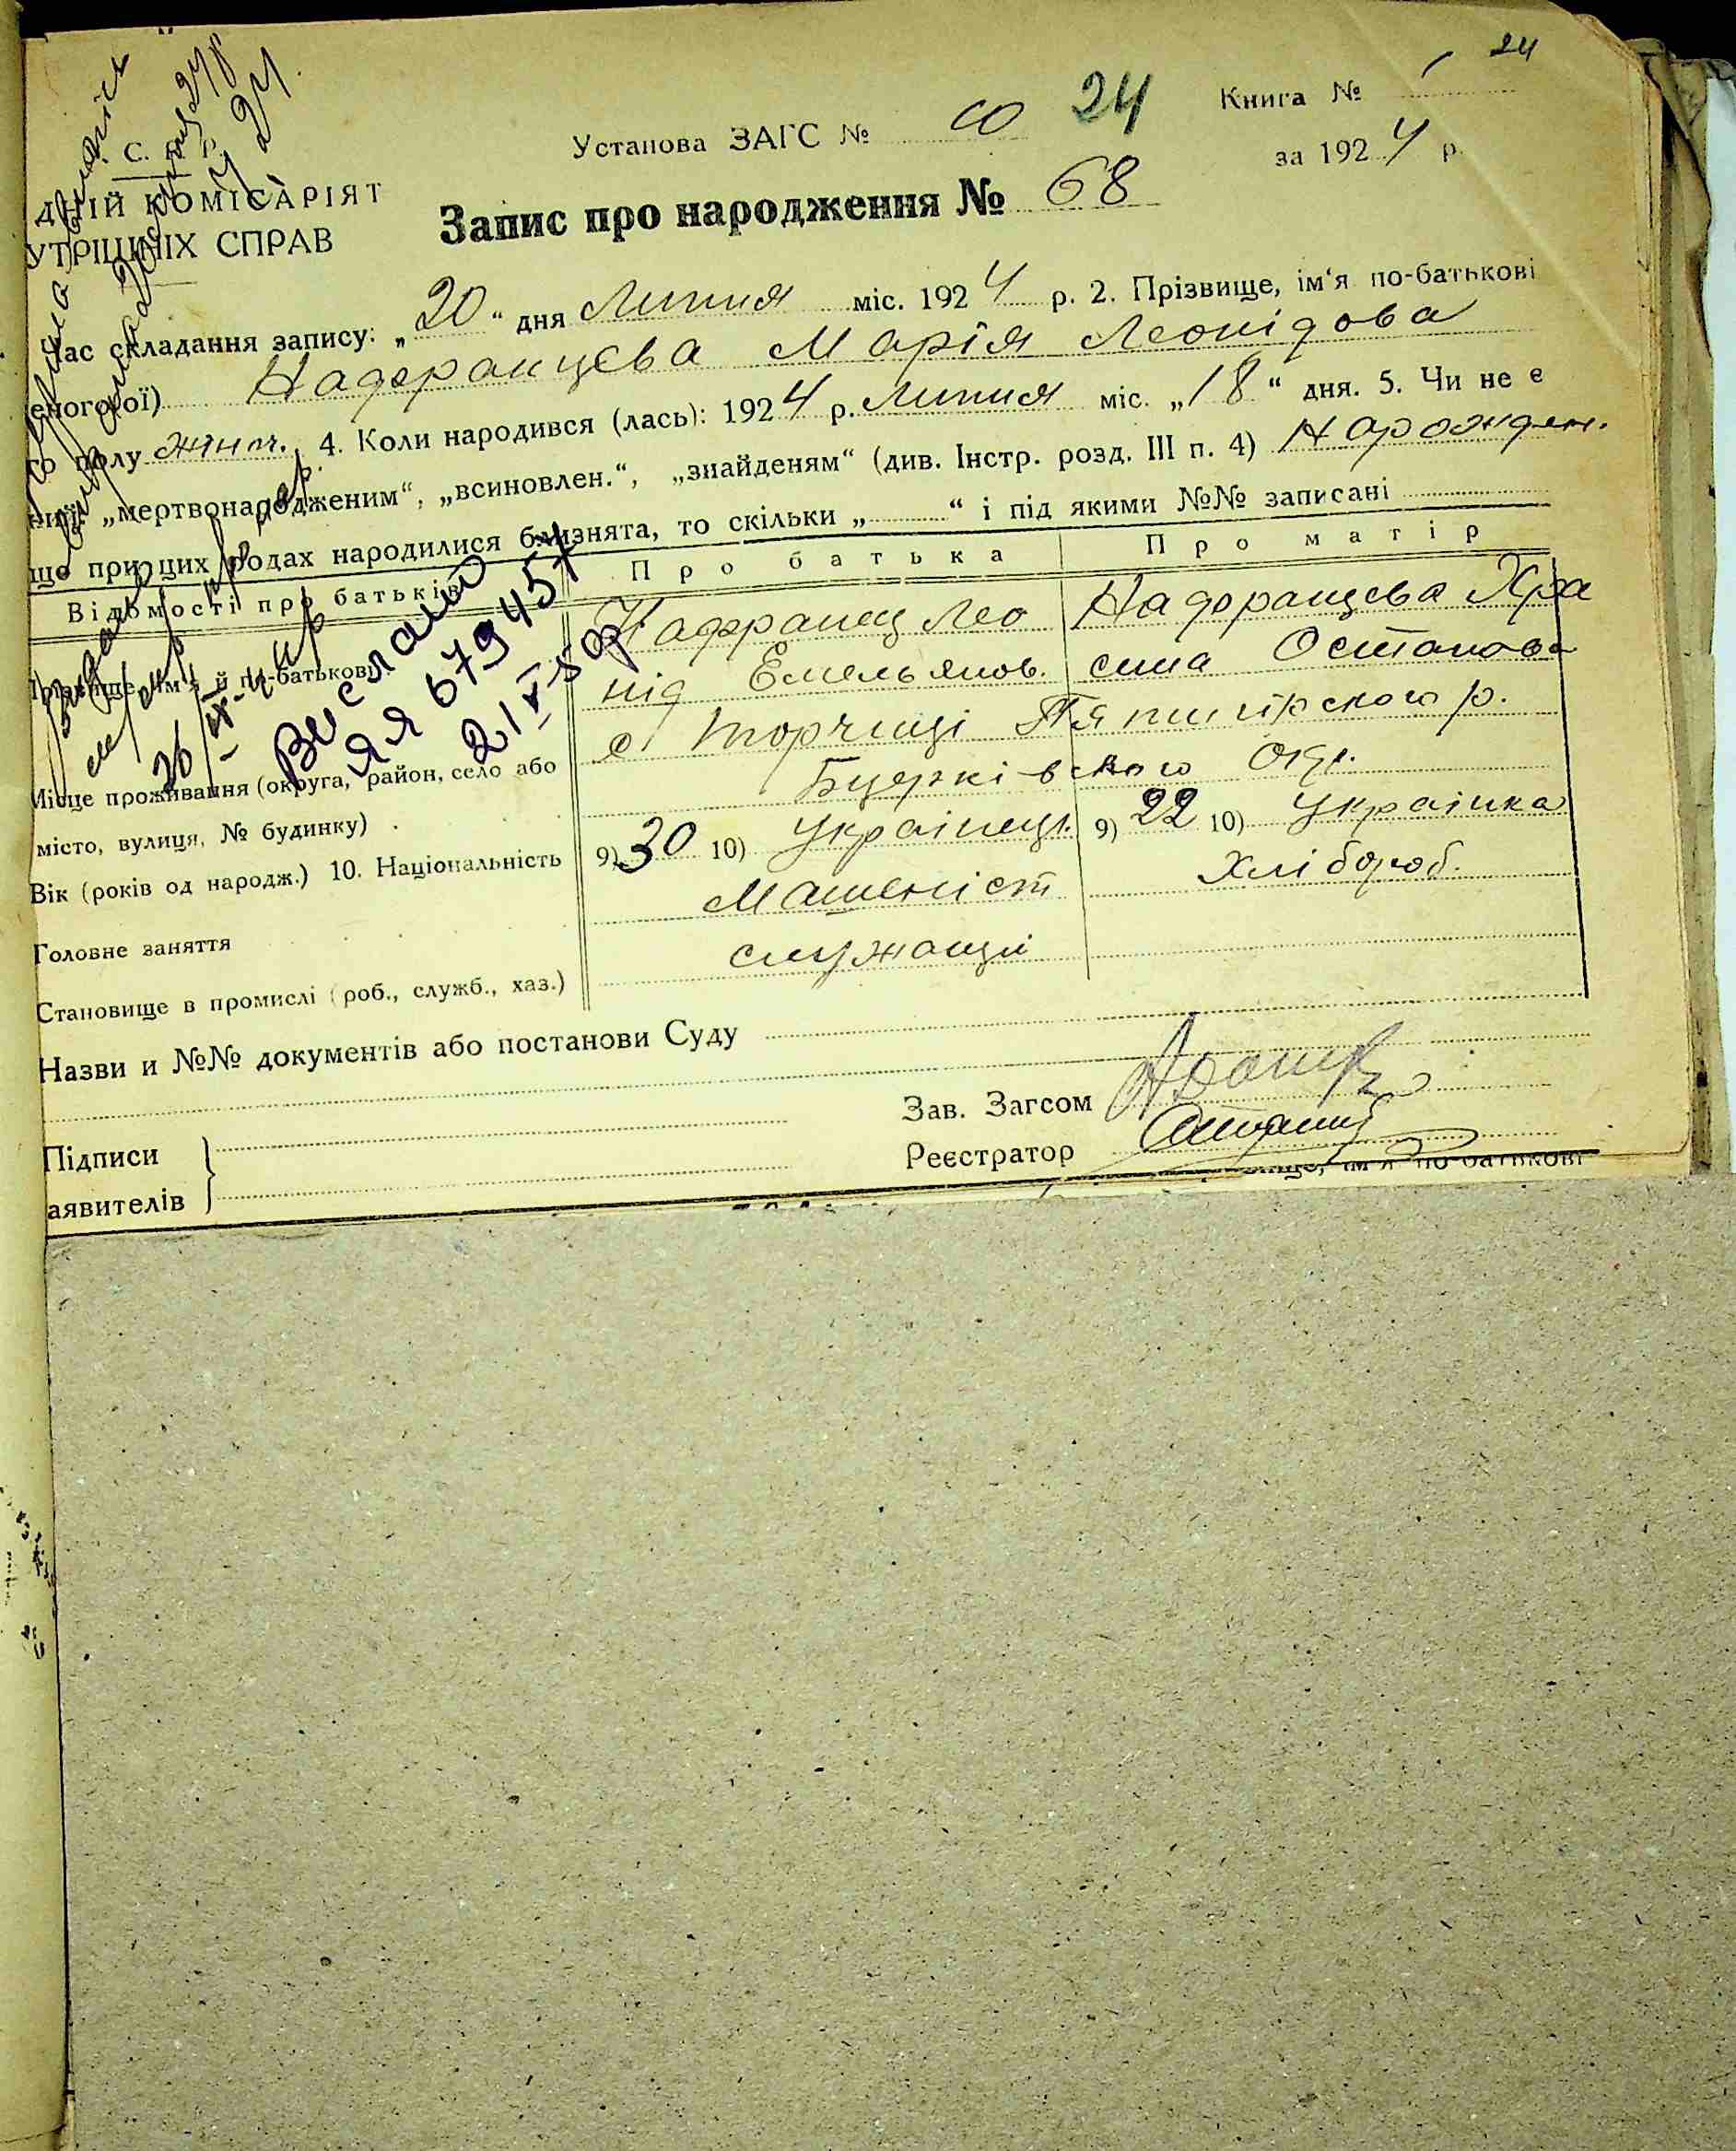 24
Книга № 1
Установа ЗАГС № 24
за 1924 р.
С. Р. Р.
ДНІЙ КОМІСАРІЯТ
УТРІШНІХ СПРАВ
Запис про народження № 68
Час складання запису: „20“ дня Липня міс. 1924 р. 2. Прізвище, ім‘я по-батькові
еного(ої) Надфранцева Марія Леонідова
го полу жіноч. 4. Коли народився (лась): 1924 р. Липня міс. „18“ дня. 5. Чи не є
ний: „мертвонародженим“, „всиновлен.“, „знайденям“ (див. Інстр. розд. III п. 4) Нарожден.
що при цих родах народилися близнята, то скільки „ “ і під якими №№ записані
Відомості про батьків
Про батька
Про матір
Прізвище, ім‘я й по-батькові
Лео
нід Емельянов.
Хра
сина Остапова
с. Торчиці П‘ятигірского р.
Бцерківского окр.
Місце проживання (округа, район, село або
місто, вулиця, № будинку)
Вік (років од народж.) 10. Національність
9) 30 10) Українець.
9) 22 10) Українка
Головне заняття
Машеніст
Хлібороб.
Становище в промислі (роб., служб., хаз.)
служащи
Назви и №№ документів або постанови Суду
Зав. Загсом
Підписи
аявителів
Реєстратор
Выслано
ЯЯ 679457
21/V-50р
ще, ім‘я по-батькові